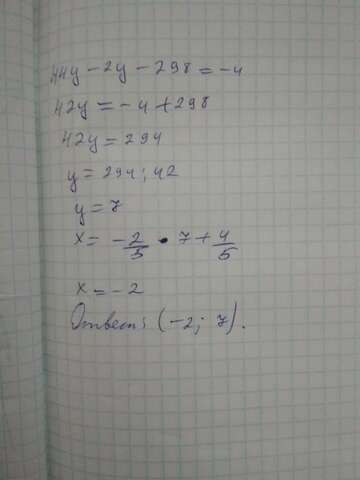 44y - 2y - 298 = -4
42y = -4 + 298
42y = 294
y = 294 : 42
y = 7
x = -2/5 • 7 + 4/5
x = -2
Ответ: (-2; 7).